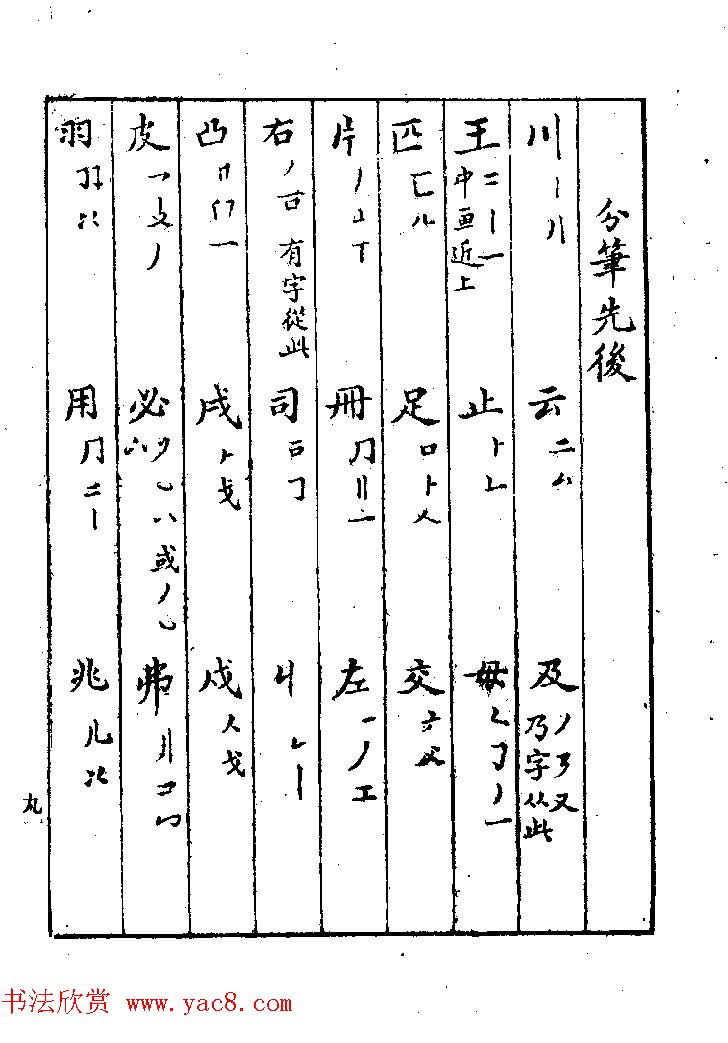 分筆先後
川 丨 〢
云 二 厶
及 丿 ㇋ 又 乃字从此
王 二 丨 一 中画近上
止 ⺊ 𠃊
毋 𠃊 𠃌 丿 一
匹 匚 儿
足 口 ⺊ 人
交 亠 八 乂
片 丿 丄 丅
冊 冂 〢 一
左 一 丿 工
右 丿 一 口 有字從此
司 𠃌
丩 𠃊 丨
凸 一
戌 戈
戍 人 戈
皮 乛 丿
必 或丿
弗 〢
羽
用 冂 二 丨
兆 儿
丸
书法欣赏 www.yac8.com